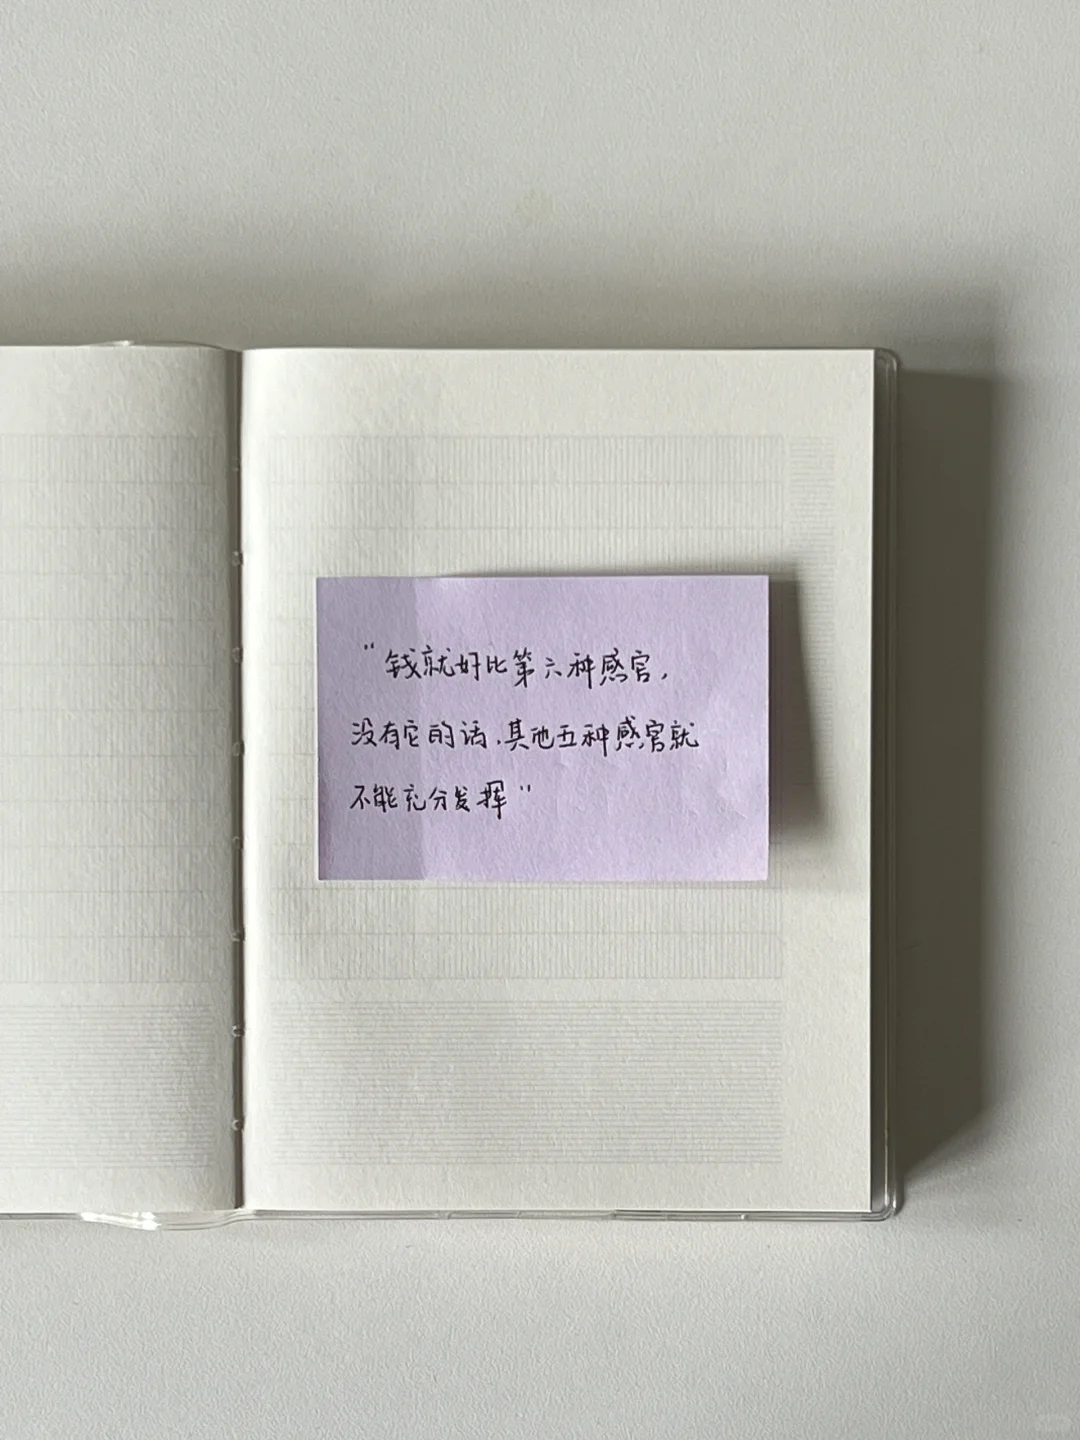 “钱就好比第六种感官，
没有它的话，其他五种感官就
不能充分发挥”